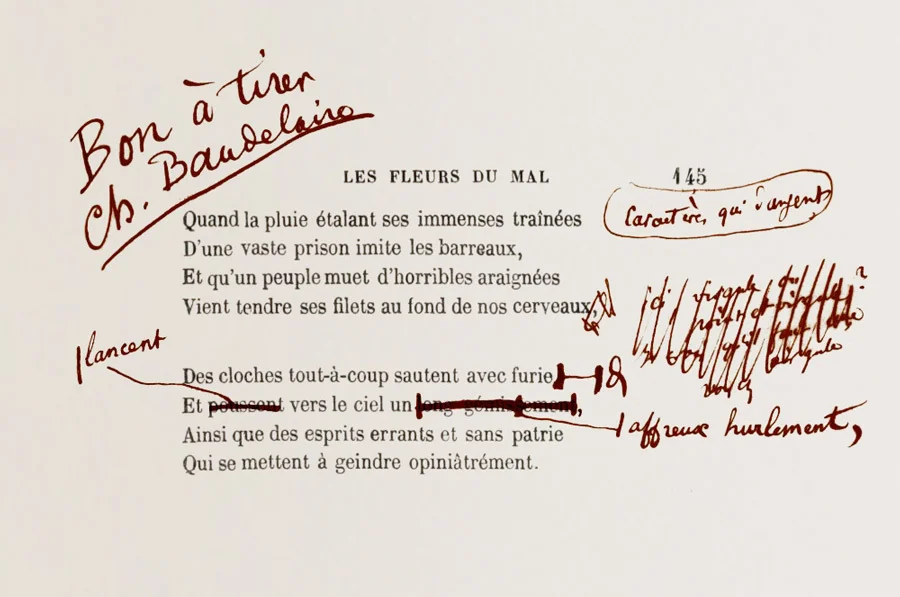 Bon à tirer
Ch. Baudelaire
LES FLEURS DU MAL 145
Caractère, qui
Quand la pluie étalant ses immenses traînées
D'une vaste prison imite les barreaux,
Et qu'un peuple muet d'horribles araignées
Vient tendre ses filets au fond de nos cerveaux,
ici virgule ou
point et virgule ?
virgule
lancent
Des cloches tout-à-coup sautent avec furie,
Et poussent vers le ciel un long gémissement,
affreux hurlement,
Ainsi que des esprits errants et sans patrie
Qui se mettent à geindre opiniâtrément.